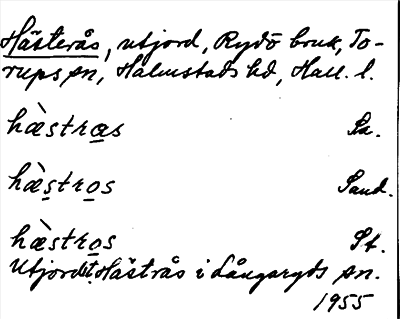 Hästerås, utjord, Rydö bruk, To-
rups sn, Halmstads hd, Hall. l.
hæ̀stras Sa.
hæ̀stros Sand.
hæ̀stros St.
Utjord st. Hästrås i Långaryds sn.
1955